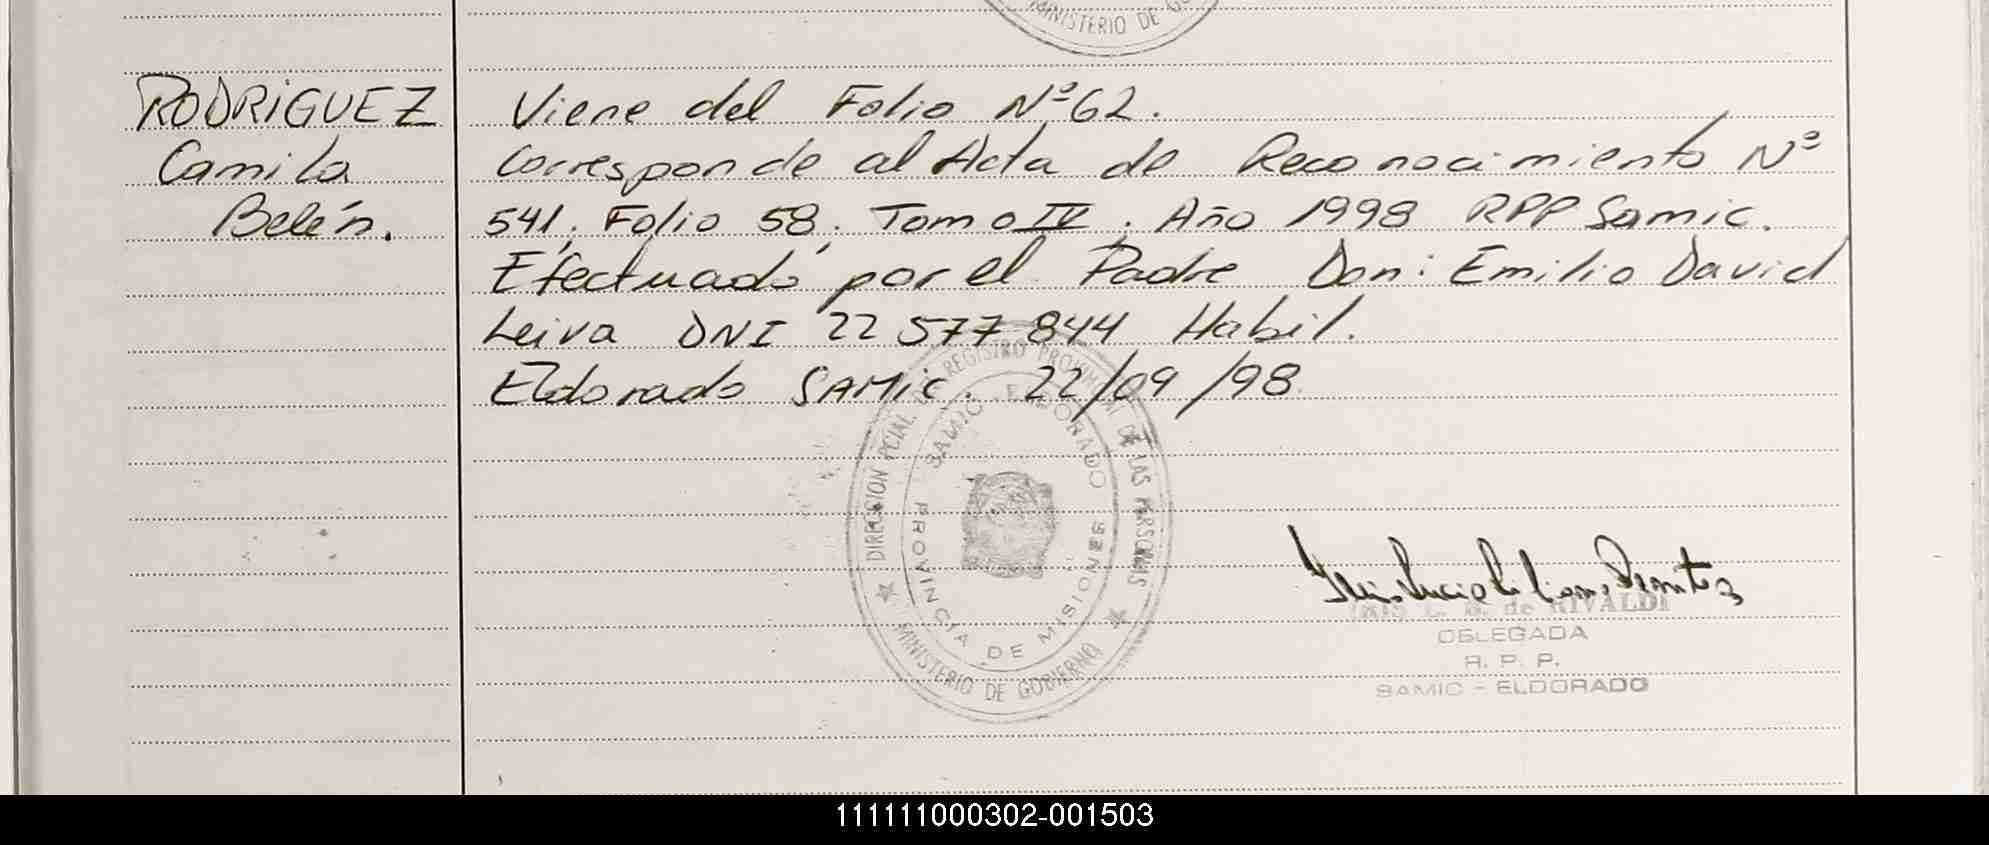 MINISTERIO DE
RODRIGUEZ
Camila
Belén.
Viene del Folio Nº 62.
Corresponde al Acta de Reconocimiento Nº
541; Folio 58; Tomo IV. Año 1998 RPP Samic.
Efectuado por el Padre Don: Emilio David
Leiva DNI 22 577 844 Habil.
Eldorado SAMIC. 22/09/98
DIRECCION PCIAL DE REGISTRO PROVINCIAL DE LAS PERSONAS
SAMIC ELDORADO
PROVINCIA DE MISIONES
MINISTERIO DE GOBIERNO
de RIVALDI
DELEGADA
R. P. P.
SAMIC - ELDORADO
111111000302-001503